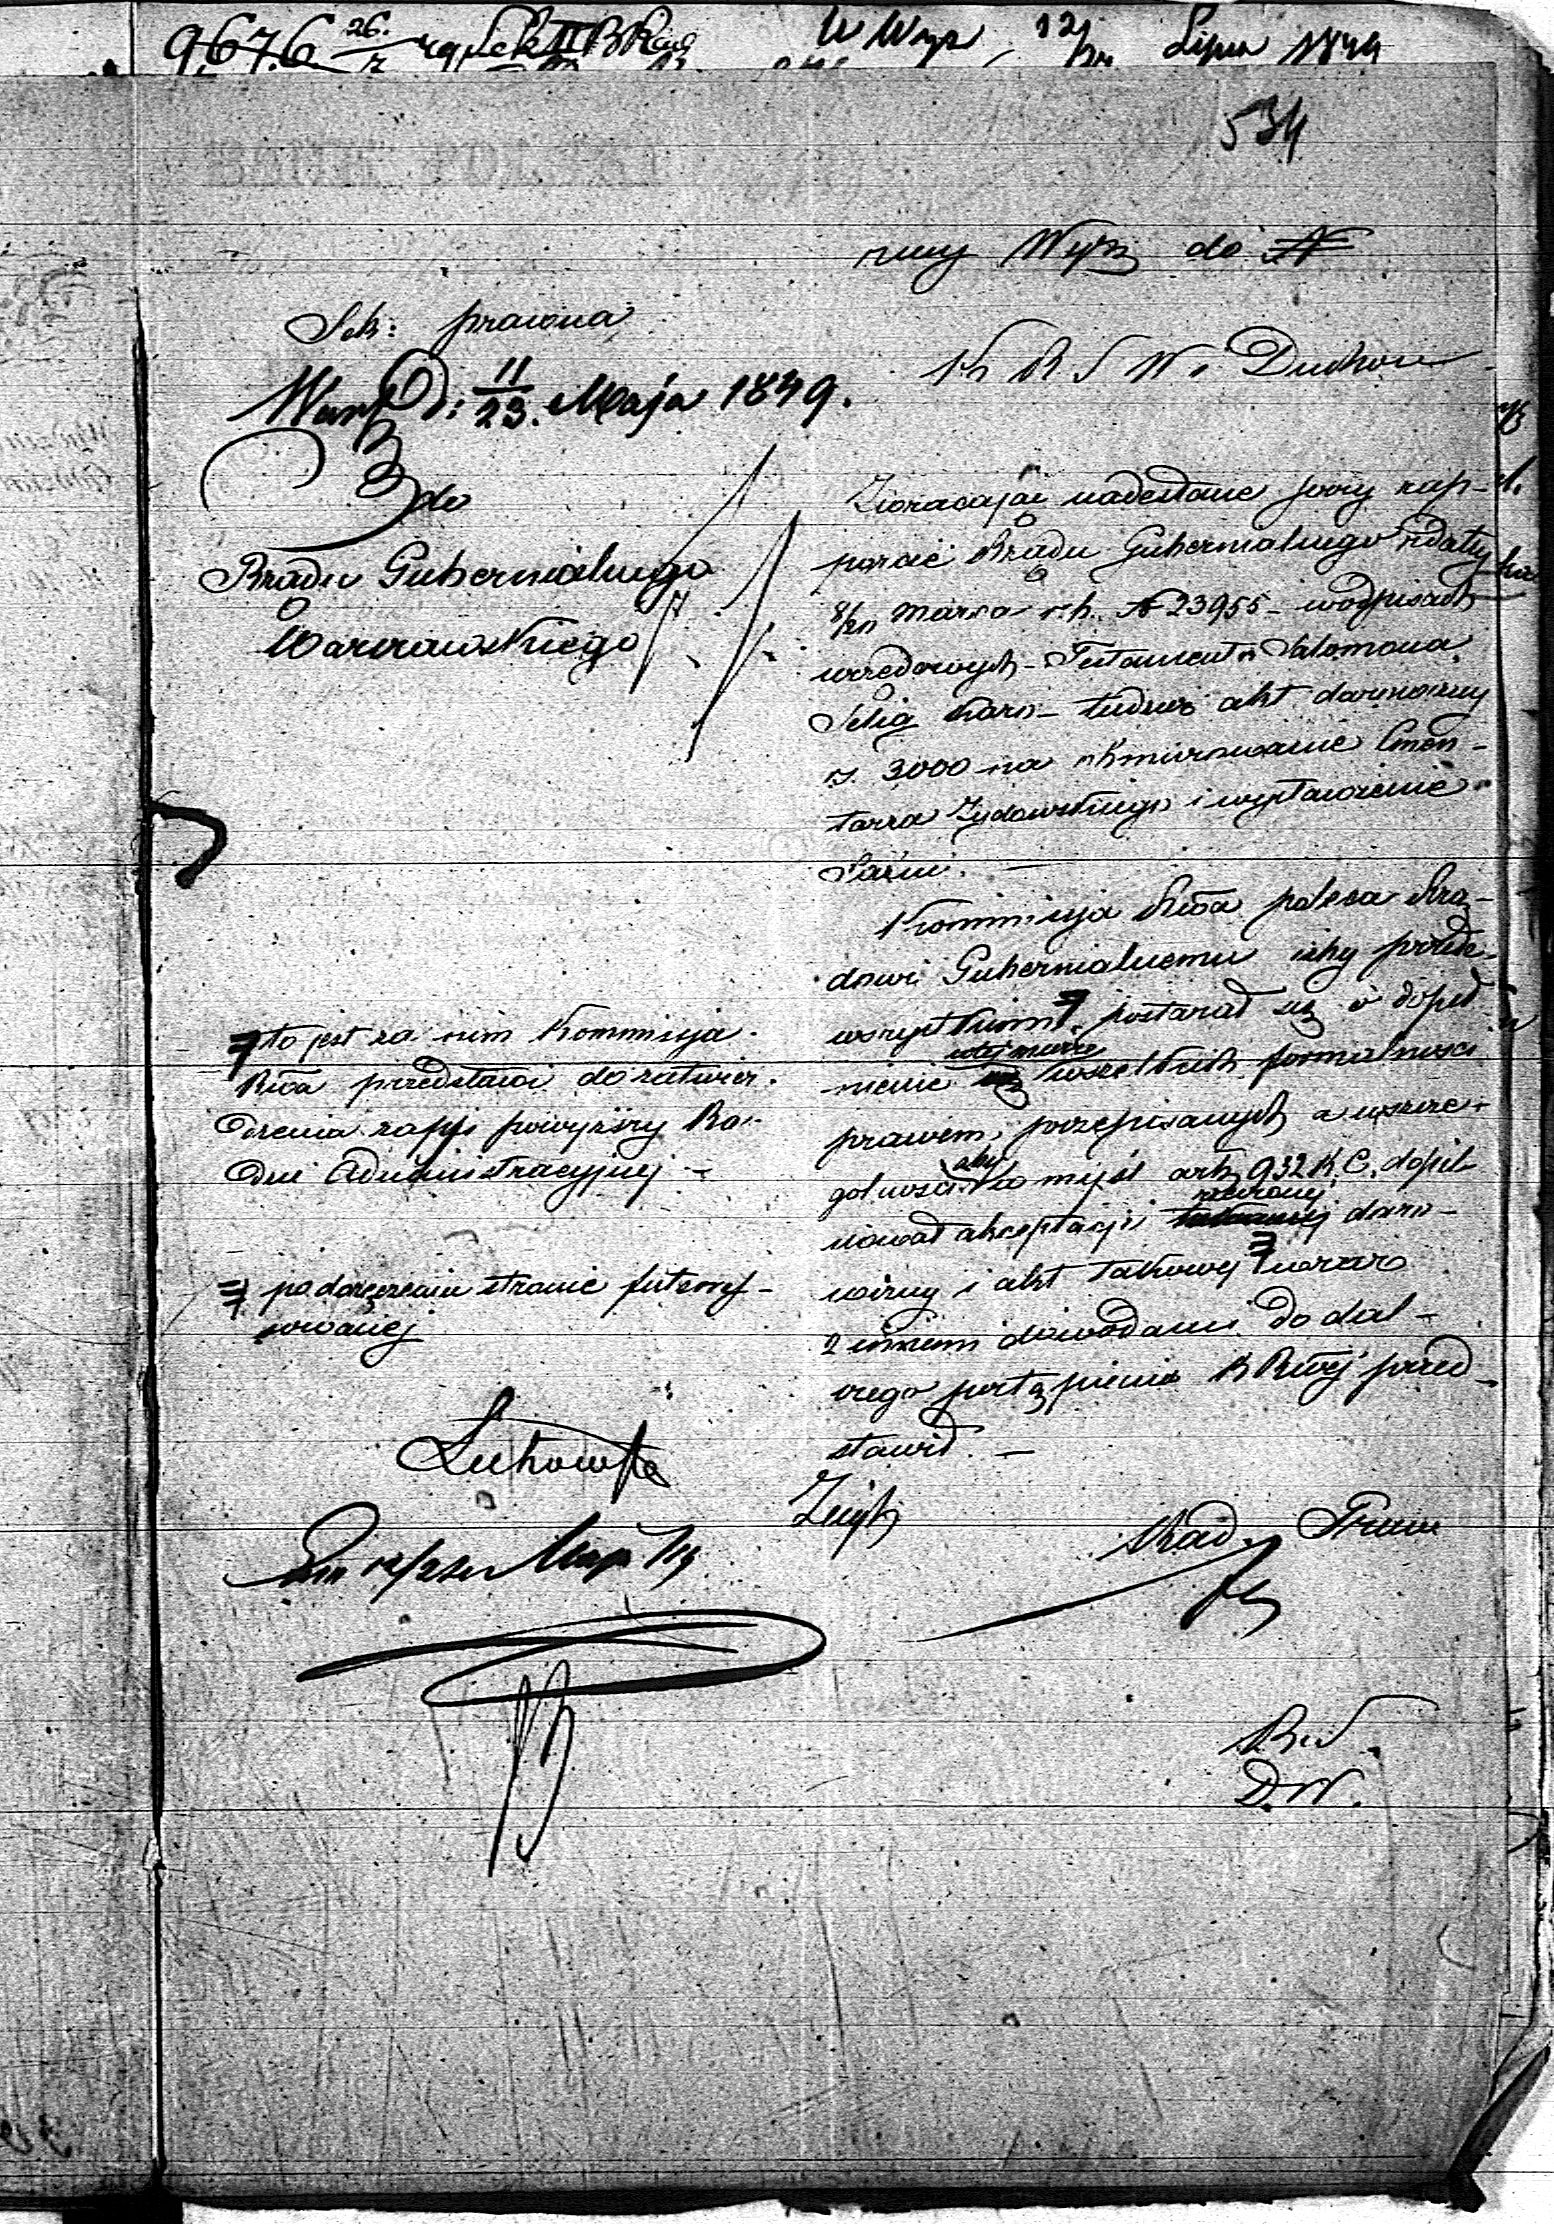 9676 26/7 Sek II
12/24 Lipca 1849
534
do N
Sek: prawna
K R S W i Duchow
Warsz d: 11/23. Maja 1849.
do
Rządu Gubernialnego
Warszawskiego
Zwracając nadesłane przy rap-
porcie Rządu Gubernialnego z daty
8/20 Marca r. b. N 23955 - w odpisach
urzędowych - Testament Salomona
Selig - tudzież akt darowizny
rs. 3000 na obmurowanie Cmen-
tarza Żydowskiego i wystawienie
Łaźni. -
Kommissya Rwa poleca Rzą-
dowi Gubernialnemu iżby przede-
wszystkiem postarał się o dopeł
nienie w tej mierze wszelkich formalności
prawem przepisanych a szcze-
gólności aby w myśl art. 932 K. C. dopil
nował akceptacji rzeczonej daro-
wizny i akt takowej wraz
z innemi dowodami do dal-
szego postąpienia K Rwej przed-
stawił. -
to jest za nim Kommissya
Rwa przedstawi do zatwier-
dzenia zapis powyższy Ra-
dzie Administracyjnej -
po doręczeniu stronie interes-
sowanej
Rad. Praw
R. S.
D. W.